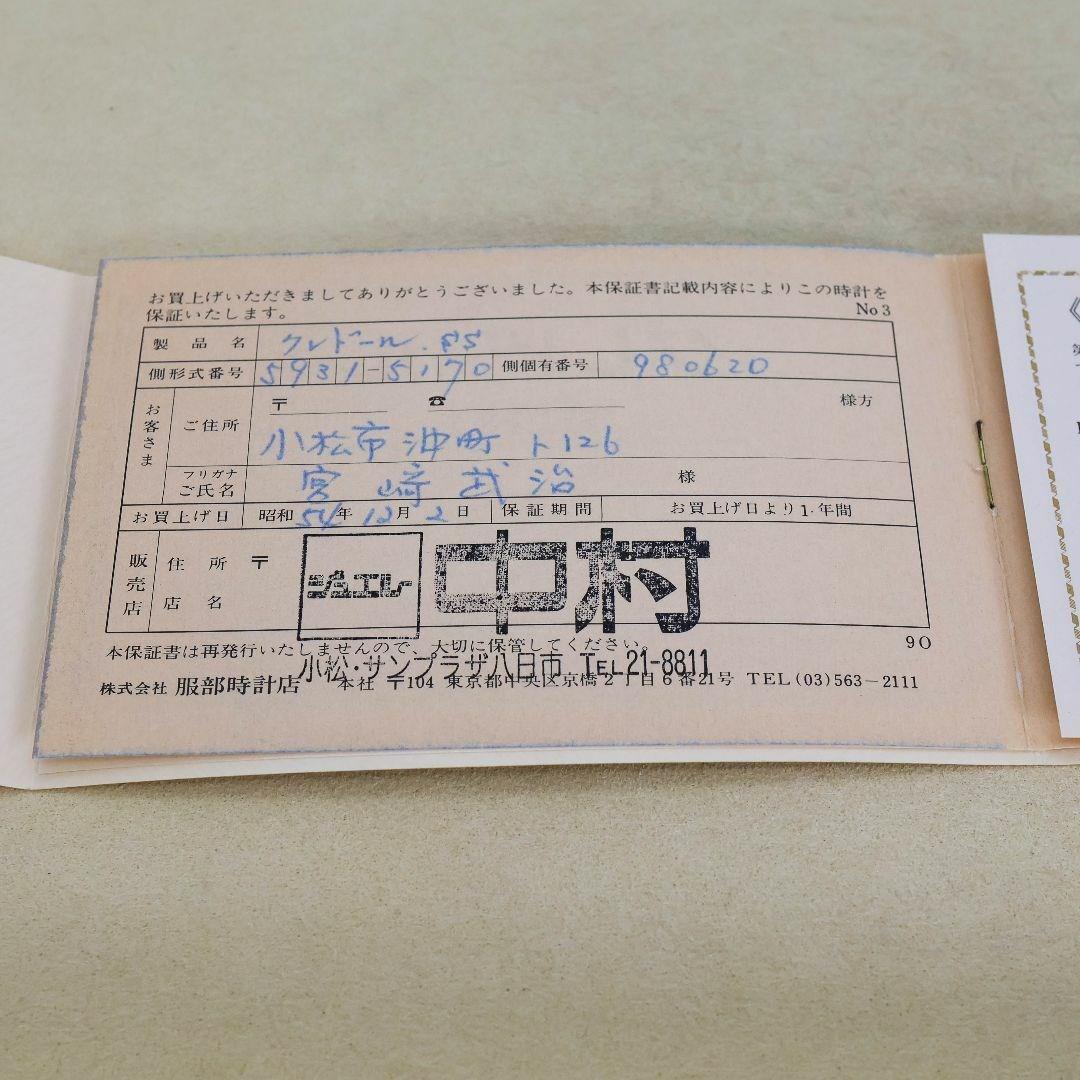 お買上げいただきましてありがとうございました。本保証書記載内容によりこの時計を
保証いたします。 No3
製品名 クレドール.SS
側形式番号 5931-5170 側個有番号 980620
お客さま ご住所 〒 ☎ 様方
小松市沖町ト126
フリガナ
ご氏名 宮崎武治 様
お買上げ日 昭和54年12月2日 保証期間 お買上げ日より1年間
販売店 住所 〒
店名
ジュエル 中村
小松・サンプラザ八日市 TEL21-8811
90
本保証書は再発行いたしませんので、大切に保管してください。
株式会社 服部時計店 本社 〒104 東京都中央区京橋2丁目6番21号 TEL(03)563-2111